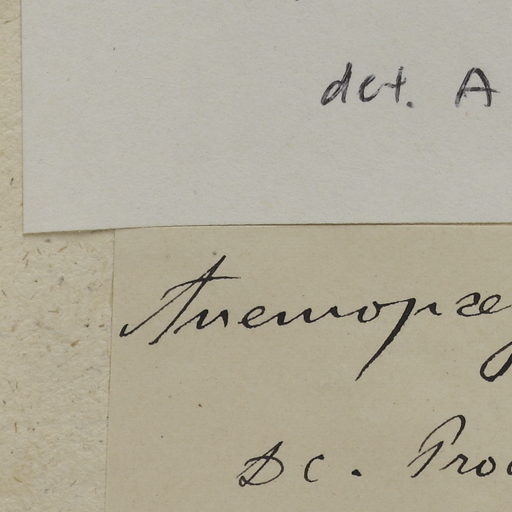 det. A
Anemopæg
DC. Pro